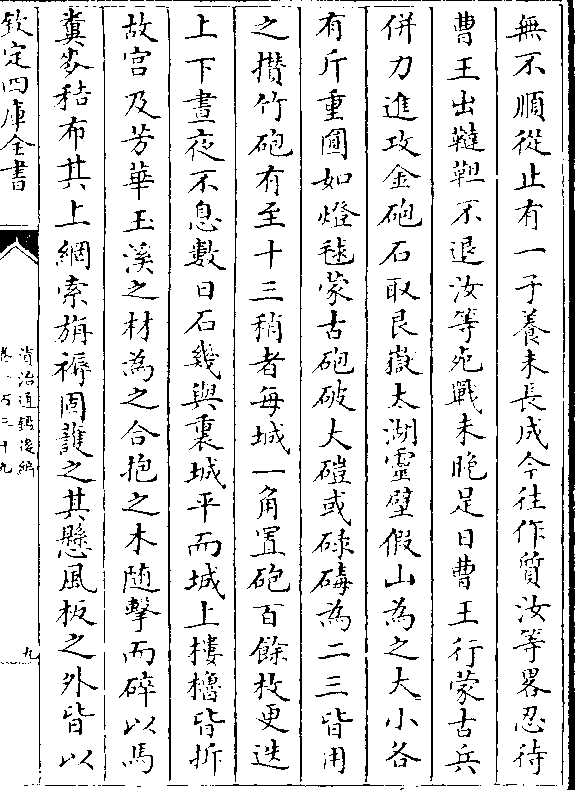 無不順從止有一子養未長成今往作質汝等畧忍待
曹王出韃靼不退汝等死戰未晩是日曹王行蒙古兵
併力進攻金砲石取艮嶽太湖靈壁假山為之大小各
有斤重圓如燈毬蒙古砲破大磑或碌碡為二三皆用
之攢竹砲有至十三稍者每城一角置砲百餘枚更迭
上下晝夜不息數日石幾與裏城平而城上樓櫓皆拆
故宫及芳華玉溪之材為之合抱之木随擊而碎以馬
糞麥秸布其上網索旃褥固護之其懸風板之外皆以
欽定四庫全書
資治通鑑後編
卷一百三十九
九